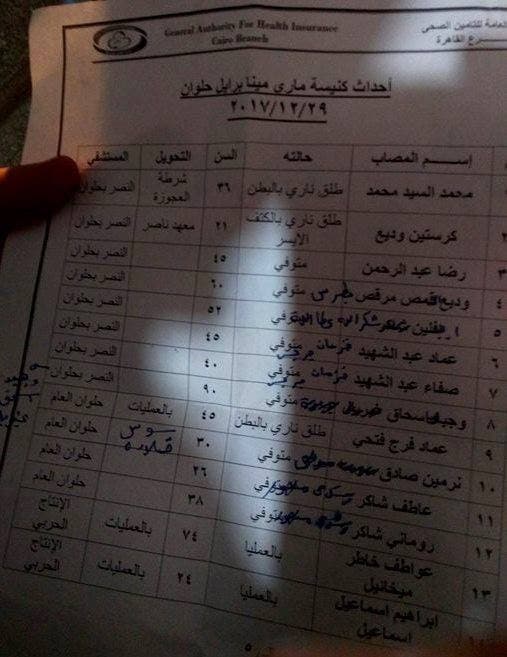 General Authority For Health Insurance
Cairo Branch
العامة للتأمين الصحى
رع القاهرة
أحداث كنيسة ماري مينا برايل حلوان
٢٠١٧/١٢/٢٩
إســـم المصاب حالته السن التحويل المستشفي
محمد السيد محمد طلق ناري بالبطن ٣٦ شرطة العجوزة النصر بحلوان
٢ كرستين وديع طلق ناري بالكتف الايسر ٢١ معهد ناصر النصر بحلوان
٣ رضا عبد الرحمن متوفي ٤٥ النصر بحلوان
٤ وديع القمص مرقص متوفي ٦٠ النصر بحلوان
٥ متوفي ٥٢ النصر بحلوان
٦ عماد عبد الشهيد متوفي ٤٥ النصر بحلوان
٧ صفاء عبد الشهيد متوفي ٤٠ النصر بحلوان
٨ اسحاق متوفي ٩٠ النصر بحلوان
٩ عماد فرج فتحي طلق ناري بالبطن ٤٥ بالعمليات حلوان العام
١٠ نرمين صادق متوفي ٣٠ حلوان العام
١١ عاطف شاكر متوفي ٢٦ حلوان العام
١٢ روماني شاكر متوفي ٣٨ حلوان العام
١٣ عواطف خاطر ميخائيل بالعمليا ٧٤ بالعمليات الإنتاج الحربي
ابراهيم اسماعيل اسماعيل بالعمليا ٢٤ بالعمليات الإنتاج الحربي